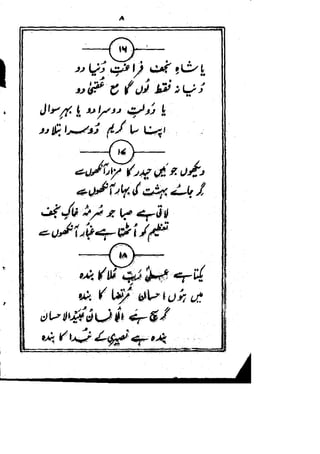 ۸
۱۶
یا شاہِ نجف فراغتِ دُنیا دو
دُنیا نہ فقط لوں گا مع عُقبیٰ دو
یا دولت دو مرا دو یا بہرِ سوال
اپنا سا کریم دُوسرا بتلا دو
۱۷
دیکھوں جو میں حیدر کا مزار آنکھوں سے
گر جائے بہشت کی بہار آنکھوں سے
لاتی ہے صبا جو سُرمۂ خاکِ نجف
تعظیم کو اُٹھتا ہے غبار آنکھوں سے
۱۸
یکتا ہے علیؑ ربِّ عُلا کا بندہ
میں ہوں احسانِ مرتضا کا بندہ
گر سچ ہے الانسان عبید الاحسان
بندہ ہے نصیری کے خُدا کا بندہ